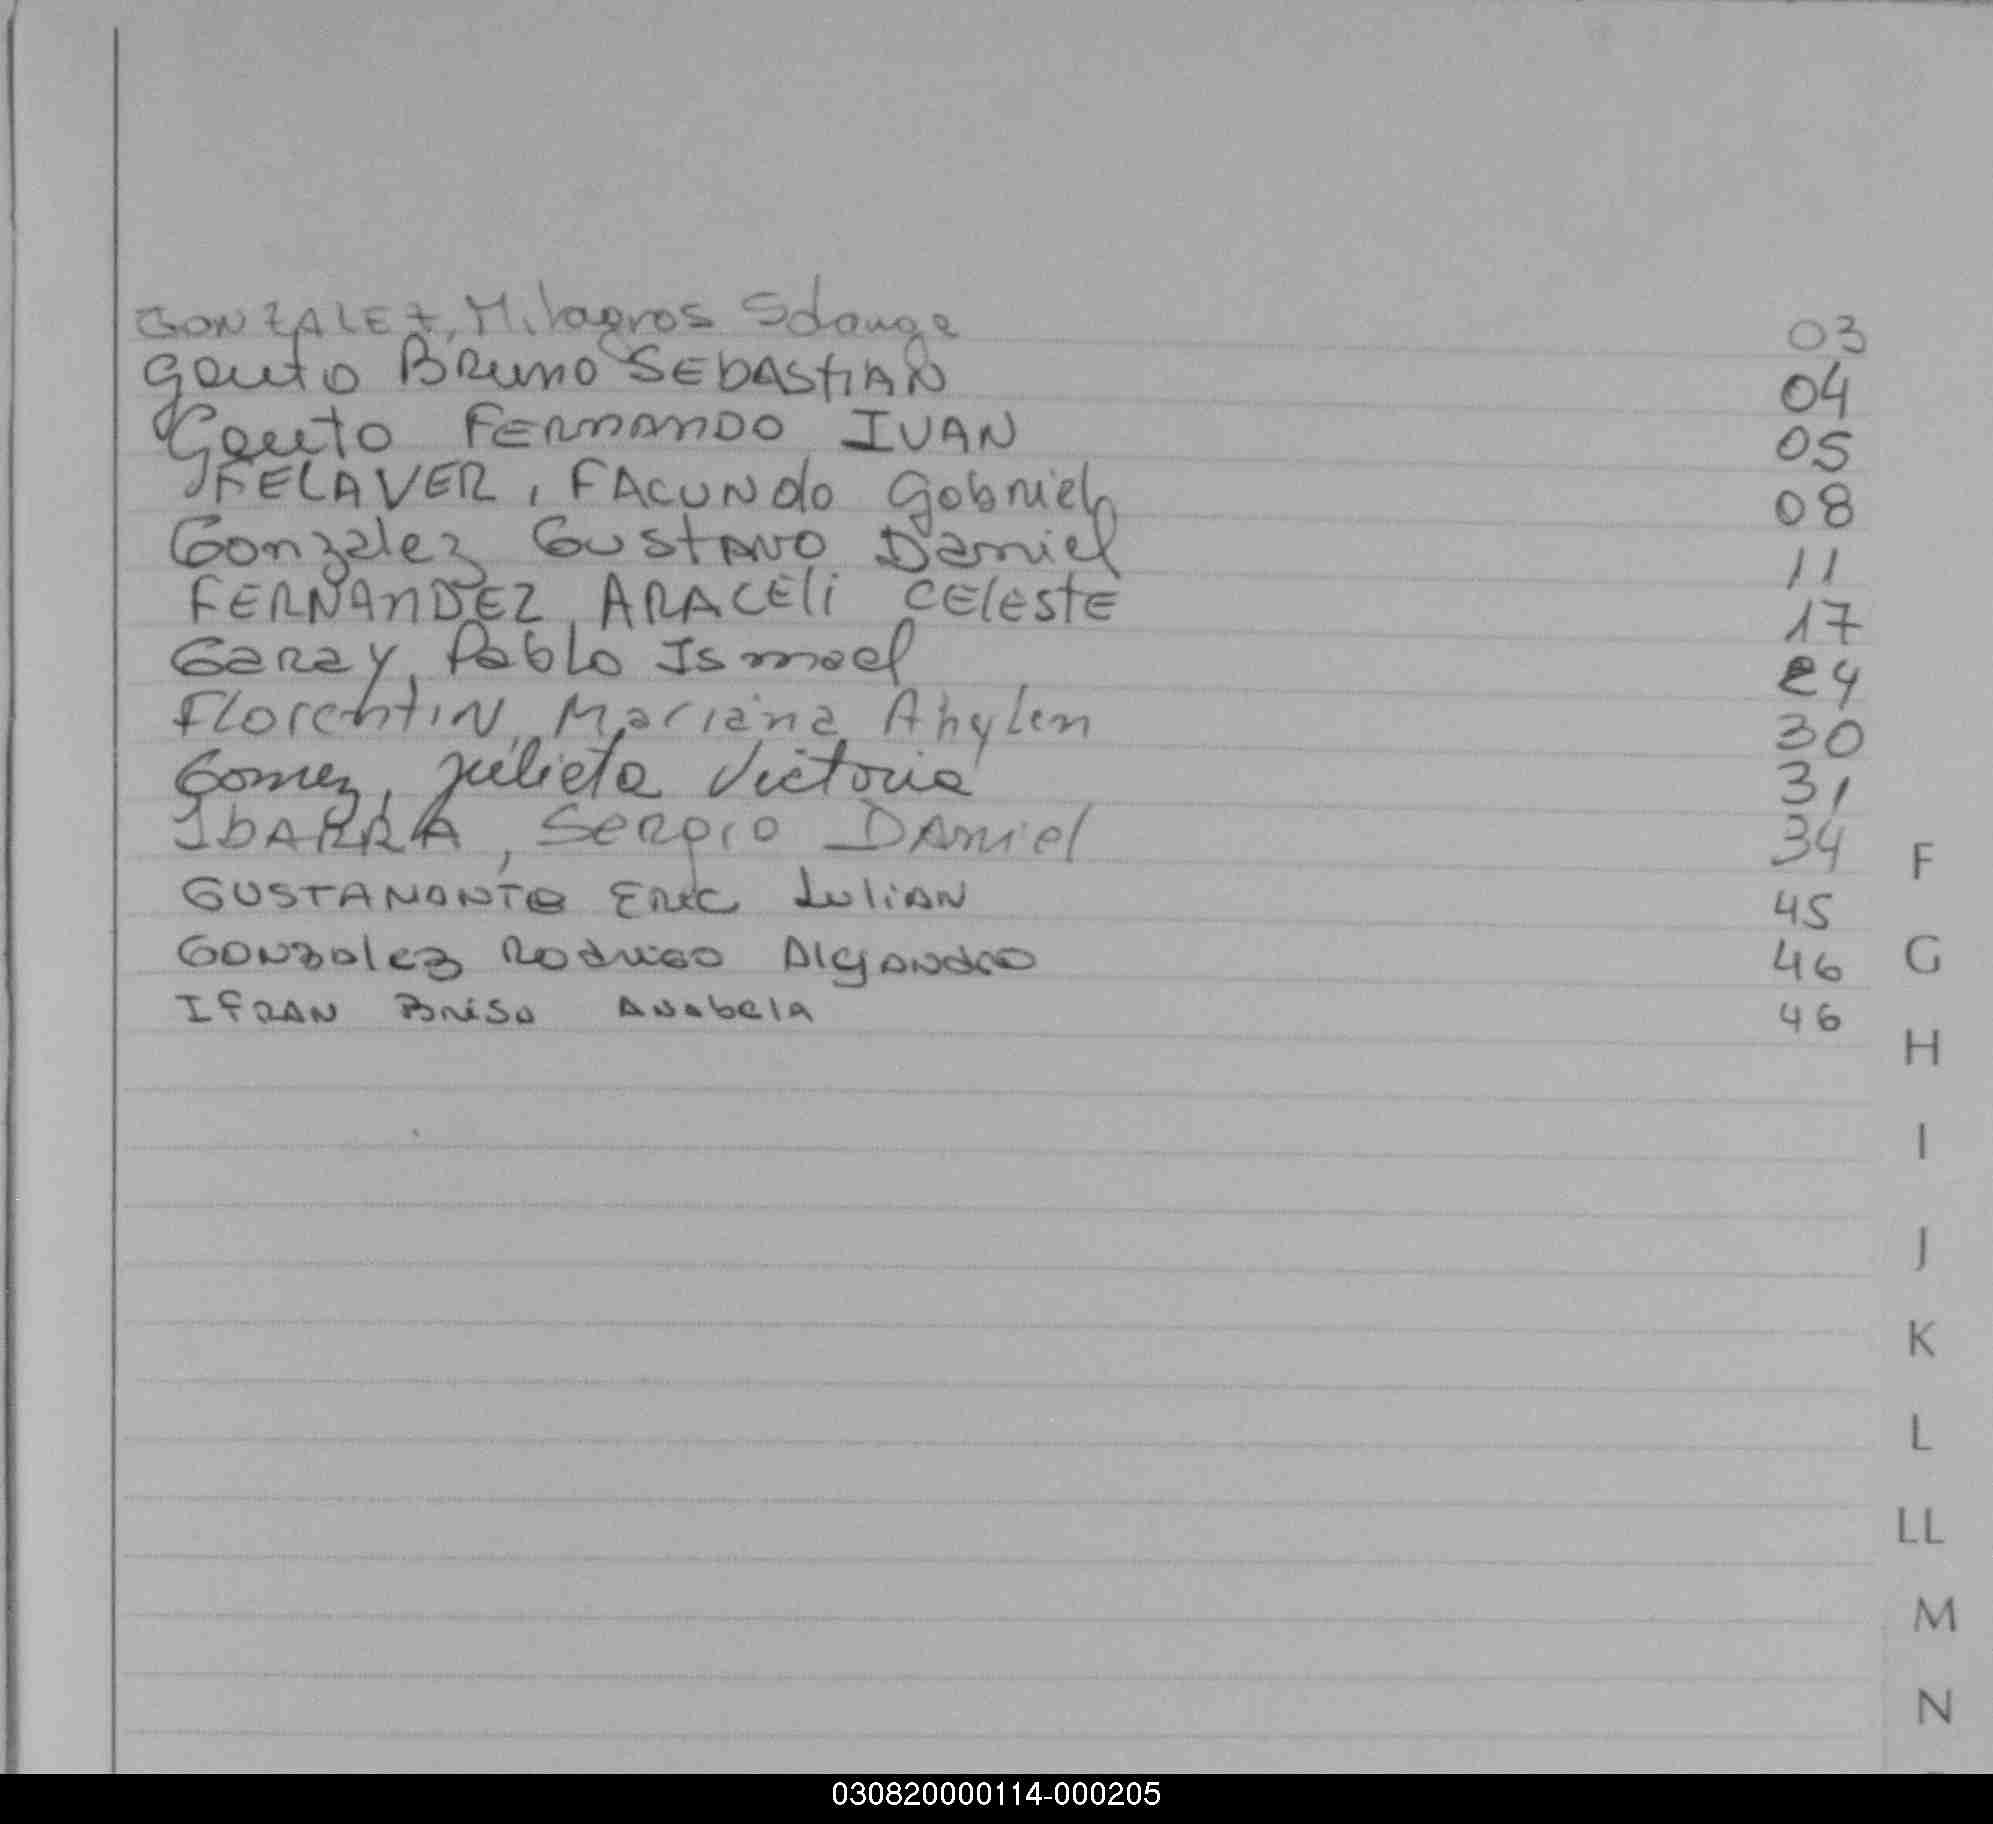 GONZALEZ, Milagros Solange 03
Gauto Bruno SEBASTIAN 04
Gauto FERNANDO IVAN 05
FELAVER, FACUNdo Gabriel 08
Gonzalez GUSTAVO Daniel 11
FERNANDEZ, ARACELi CElEStE 17
Garay, Pablo Ismael 24
FlorentIN, Mariana Ahylen 30
Gomez, Julieta Victoria 31
IbARRA, SERgIO DANiel 34
F
GUSTAMANTE ERIC IuliAN 45
GONzalez Rodrigo Alejandro 46
G
IFRAN Brisa Anabela 46
H
I
J
K
L
LL
M
N
030820000114-000205